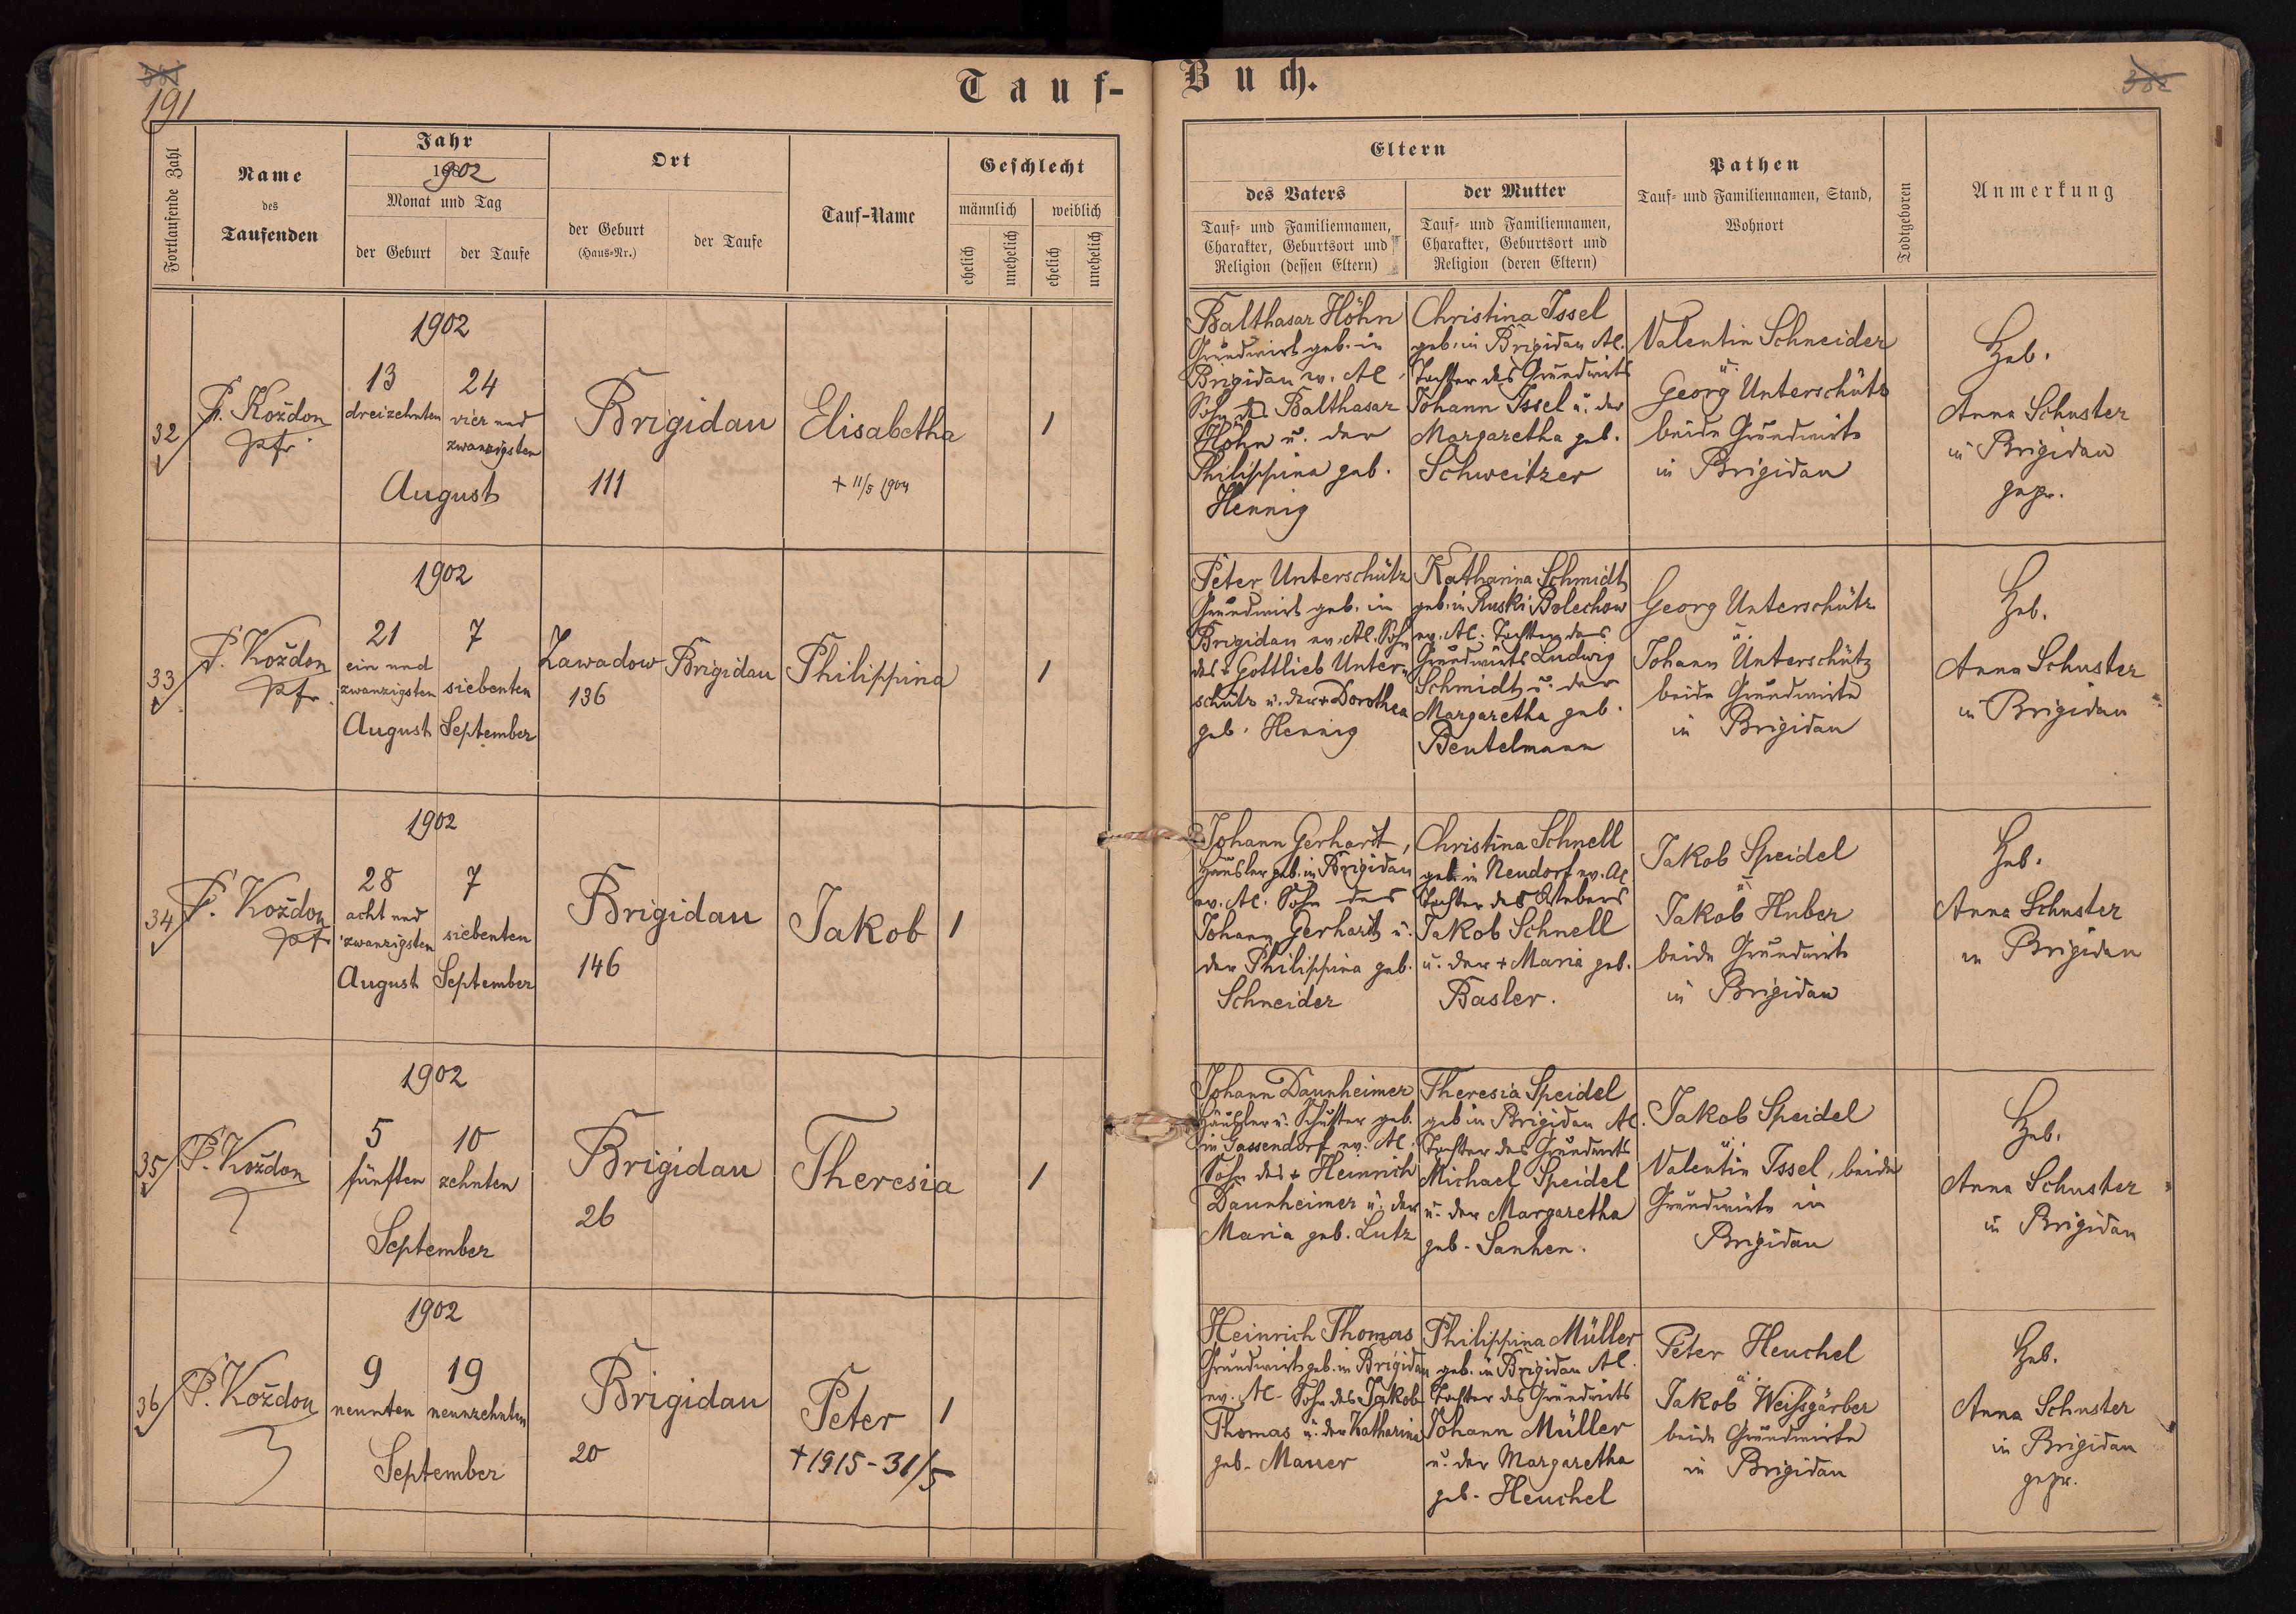 191
Tauf-Buch.
Fortlaufende Zahl
Name
des
Taufenden
Jahr
1902
Monat und Tag
der Geburt
der Taufe
Ort
der Geburt
(Haus-Nr.)
der Taufe
Tauf-Name
Geschlecht
männlich
weiblich
ehelich
unehelich
ehelich
unehelich
Eltern
des Vaters
Tauf- und Familiennamen,
Charakter, Geburtsort und
Religion (dessen Eltern)
der Mutter
Tauf- und Familiennamen,
Charakter, Geburtsort und
Religion (deren Eltern)
Pathen
Tauf- und Familiennamen, Stand,
Wohnort
Todtgeboren
Anmerkung
32
P. Koždon
Pfr.
1902
13
dreizehnten
24
vier und
zwanzigsten
August
Brigidau
111
Elisabetha
+ 11/5 1904
1
Balthasar Höhn
Grundwirt geb. in
Brigidau ev. AC
Sohn des Balthasar
Höhn u. der
Philippina geb.
Hennig
Christina Issel
geb. in Brigidau AC.
Tochter des Grundwirts
Johann Issel u. der
Margaretha geb.
Schweitzer
Valentin Schneider
u.
Georg Unterschütz
beide Grundwirte
in Brigidau
Heb.
Anna Schuster
in Brigidau
gepr.
33
P. Koždon
pfr.
1902
21
ein und
zwanzigsten
August
7
siebenten
September
Zawadow
136
Brigidau
Philippina
1
Peter Unterschütz
Grundwirt geb. in
Brigidau ev. AC. Sohn
des + Gottlieb Unter-
schütz u. der + Dorothea
geb. Hennig
Katharina Schmidt
geb. in Ruski Bolechow
ev. AC. Tochter des
Grundwirts Ludwig
Schmidt u. der
Margaretha geb.
Beutelmann
Georg Unterschütz
u.
Johann Unterschütz
beide Grundwirte
in Brigidau
Heb.
Anna Schuster
in Brigidau
34
P. Koždon
pfr.
1902
28
acht und
zwanzigsten
August
7
siebenten
September
Brigidau
146
Jakob
1
Johann Gerhardt,
Häusler geb. in Brigidau
ev. AC. Sohn des
Johann Gerhardt u.
der Philippina geb.
Schneider
Christina Schnell
geb. in Neudorf ev. AC
Tochter des
Jakob Schnell
u. der + Maria geb.
Basler.
Jakob Speidel
u.
Jakob Huber
beide Grundwirte
in Brigidau
Heb.
Anna Schuster
in Brigidau
35
P. Koždon
1902
5
fünften
10
zehnten
September
Brigidau
26
Theresia
1
Johann Daunheimer
Häusler u. Schuster geb.
in Gassendorf ev. AC.
Sohn des + Heinrich
Daunheimer u. der
Maria geb. Lutz
Theresia Speidel
geb in Brigidau AC.
Tochter des Grundwirts
Michael Speidel
u. der Margaretha
geb. Sanhen.
Jakob Speidel
u.
Valentin Issel, beide
Grundwirte in
Brigidau
Heb.
Anna Schuster
in Brigidau
36
P. Koždon
1902
9
neunten
19
neunzehnten
September
Brigidau
20
Peter
+ 1915 - 31/5
1
Heinrich Thomas
Grundwirt geb. in Brigidau
ev. AC. Sohn des Jakob
Thomas u. der Katharina
geb. Mauer
Philippina Müller
geb. in Brigidau AC.
Tochter des Grundwirts
Johann Müller
u. der Margaretha
geb. Heuchel
Peter Heuchel
u.
Jakob Weißgärber
beide Grundwirte
in Brigidau
Heb.
Anna Schuster
in Brigidau
gepr.